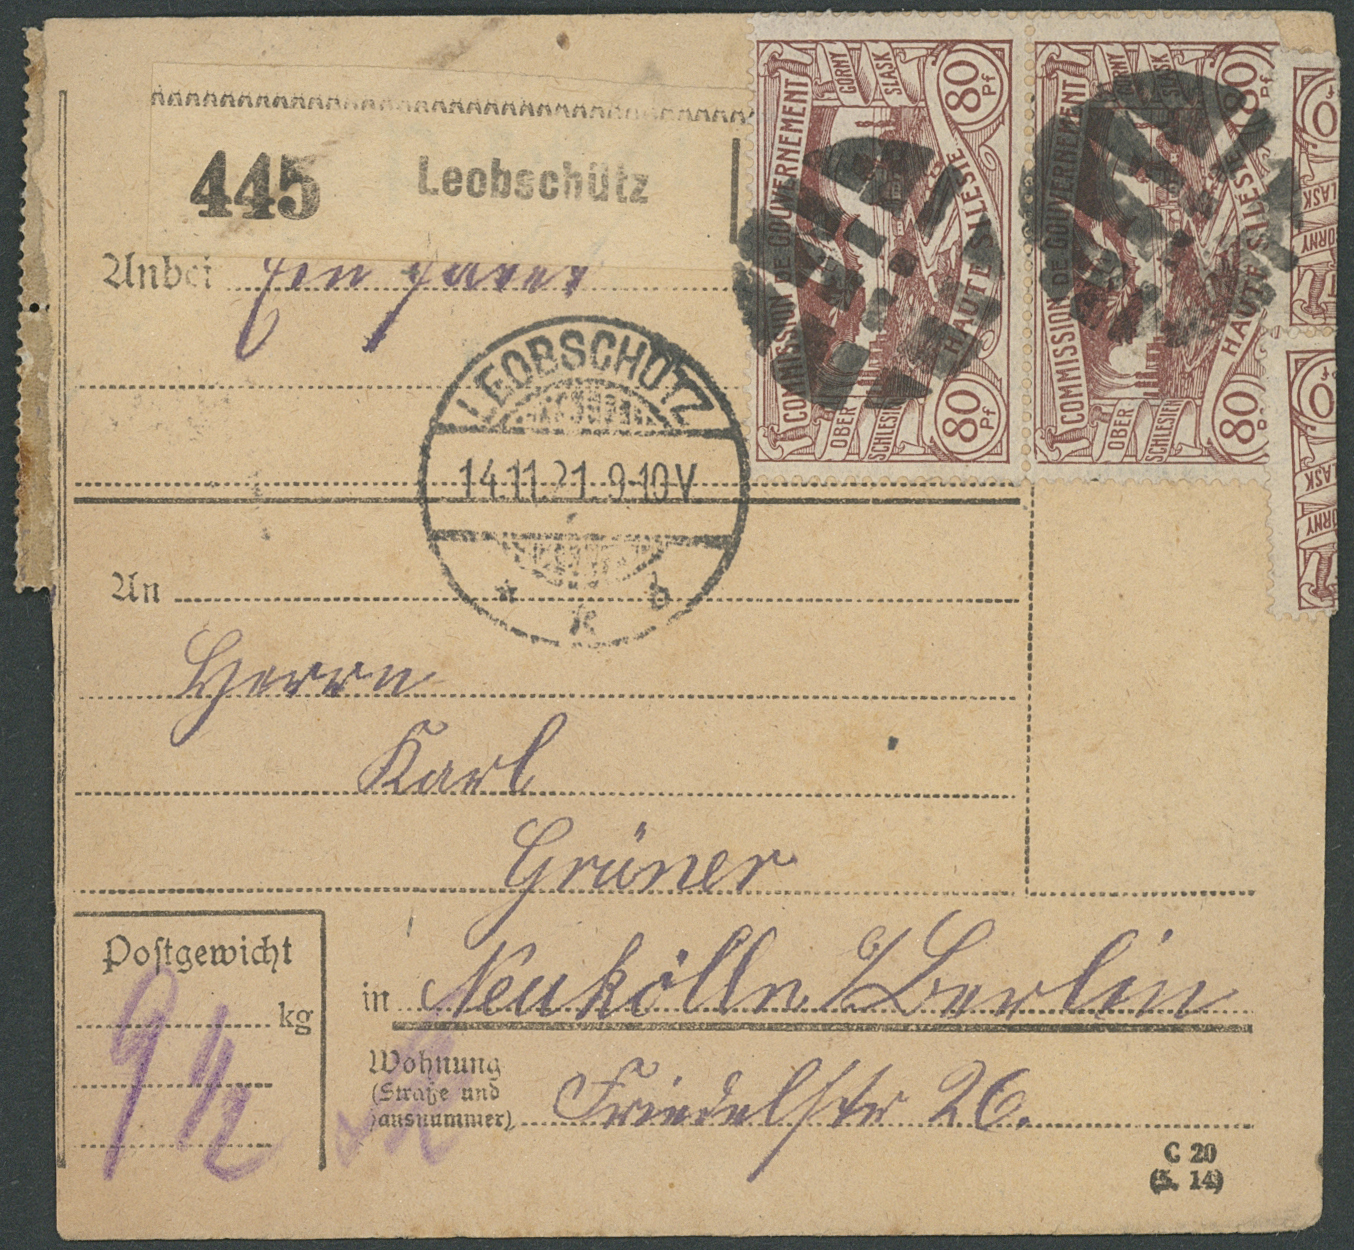 445 Leobschütz
Anbei Ein Paket
LEOBSCHÜTZ
14.11.21. 9-10V
* k b
COMMISSION DE GOUVERNEMENT
HAUTE SILESIE
GORNY SLASK
OBER SCHLESIEN
80 Pf
80 Pf
COMMISSION DE GOUVERNEMENT
HAUTE SILESIE
GORNY SLASK
OBER SCHLESIEN
80 Pf
80
An
Herrn
Karl
Grüner
in Neukölln b/Berlin
Wohnung
(Straße und
ausnummer) Friedelstr 26.
Postgewicht
9 1/2 kg
C 20
(5. 14)